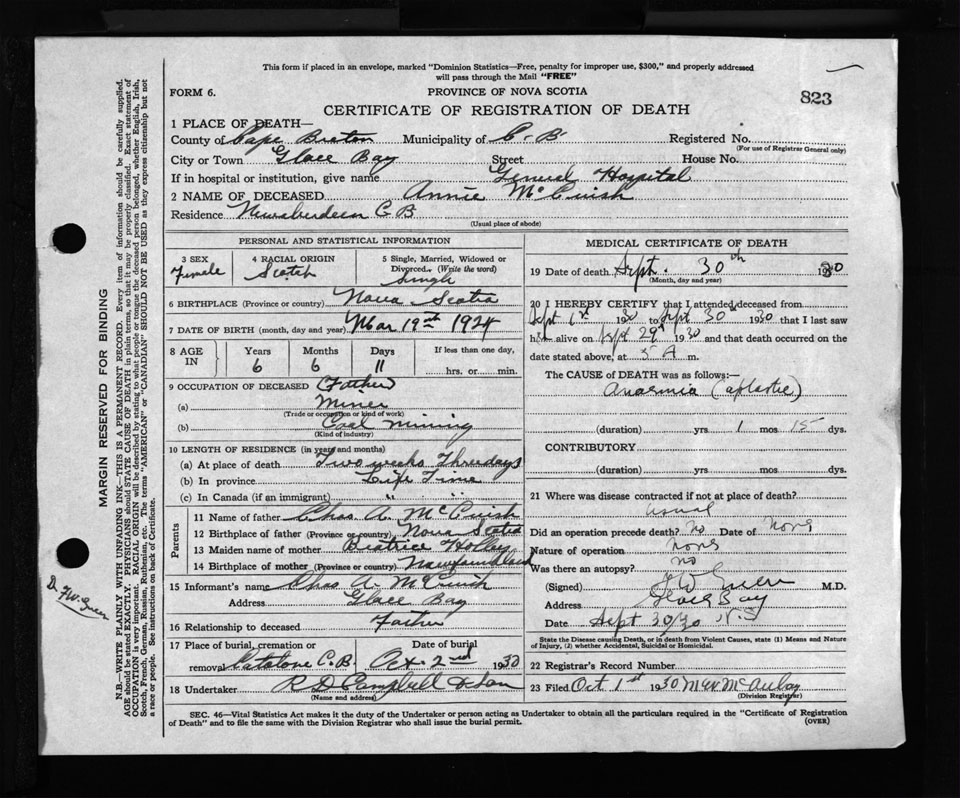 This form if placed in an envelope, marked "Dominion Statistics—Free, penalty for improper use, $300," and properly addressed
will pass through the Mail "FREE"
FORM 6.
PROVINCE OF NOVA SCOTIA
823
CERTIFICATE OF REGISTRATION OF DEATH
1 PLACE OF DEATH—
County of Cape Breton Municipality of C. B. Registered No.
(For use of Registrar General only)
City or Town Glace Bay Street House No.
If in hospital or institution, give name General Hospital
2 NAME OF DECEASED Annie McCuish
Residence Newaberdeen C B
(Usual place of abode)
PERSONAL AND STATISTICAL INFORMATION
3 SEX
Female
4 RACIAL ORIGIN
Scotch
5 Single, Married, Widowed or
Divorced. (Write the word)
Single
6 BIRTHPLACE (Province or country) Nova Scotia
7 DATE OF BIRTH (month, day and year) Mar 19th 1924
8 AGE
IN
Years
6
Months
6
Days
11
If less than one day,
hrs. or min.
9 OCCUPATION OF DECEASED (Father)
(a) Miner
(Trade or occupation or kind of work)
(b) Coal mining
(Kind of industry)
10 LENGTH OF RESIDENCE (in years and months)
(a) At place of death Two weeks Three days
(b) In province Life Time
(c) In Canada (if an immigrant) " " "
Parents
11 Name of father Chas A. McCuish
12 Birthplace of father (Province or country) Nova Scotia
13 Maiden name of mother Beatrice
14 Birthplace of mother (Province or country) Newfoundland
15 Informant's name Chas A. McCuish
Address Glace Bay
16 Relationship to deceased Father
17 Place of burial, cremation or
removal Catalone C. B.
Date of burial
Oct. 2nd 1930
18 Undertaker R D Campbell & Son
(Name and address)
MEDICAL CERTIFICATE OF DEATH
19 Date of death Sept. 30th 1930
(Month, day and year)
20 I HEREBY CERTIFY that I attended deceased from
Sept 1st 1930 to Sept 30th 1930 that I last saw
h alive on Sept 29th 1930 and that death occurred on the
date stated above, at 5 A m.
The CAUSE OF DEATH was as follows:—
Anaemia (aplastic)
(duration) yrs 1 mos 15 dys.
CONTRIBUTORY
(duration) yrs. mos. dys.
21 Where was disease contracted if not at place of death?
usual
Did an operation precede death? no Date of none
Nature of operation none
Was there an autopsy? no
(Signed) F W Green M.D.
Address Glace Bay
Date Sept 30/30 N.S
State the Disease causing Death, or in death from Violent Causes, state (1) Means and Nature
of Injury, (2) whether Accidental, Suicidal or Homicidal.
22 Registrar's Record Number
23 Filed Oct 1st 1930 McAulay
(Division Registrar)
SEC. 46—Vital Statistics Act makes it the duty of the Undertaker or person acting as Undertaker to obtain all the particulars required in the "Certificate of Registration
of Death" and to file the same with the Division Registrar who shall issue the burial permit.
(OVER)
MARGIN RESERVED FOR BINDING
N.B.—WRITE PLAINLY WITH UNFADING INK—THIS IS A PERMANENT RECORD. Every item of information should be carefully supplied.
AGE should be stated EXACTLY. PHYSICIANS should STATE CAUSE OF DEATH in plain terms, so that it may be properly classified. Exact statement of
OCCUPATION is very important. RACIAL ORIGIN will be described by stating to what people or tongue the deceased person belonged, whether English, Irish,
Scotch, French, German, Russian, Ruthenian, etc. The terms "AMERICAN" or "CANADIAN" SHOULD NOT BE USED as they express citizenship but not
a race or people. See instructions on back of Certificate.
Dr F.W. Green